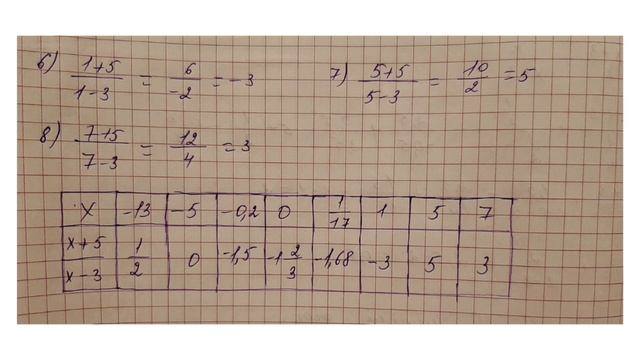 6) (1+5)/(1-3) = 6/-2 = -3 7) (5+5)/(5-3) = 10/2 = 5
8) (7+5)/(7-3) = 12/4 = 3
x -13 -5 -0,2 0 1/17 1 5 7
(x+5)/(x-3) 1/2 0 -1,5 -1 2/3 -1,68 -3 5 3